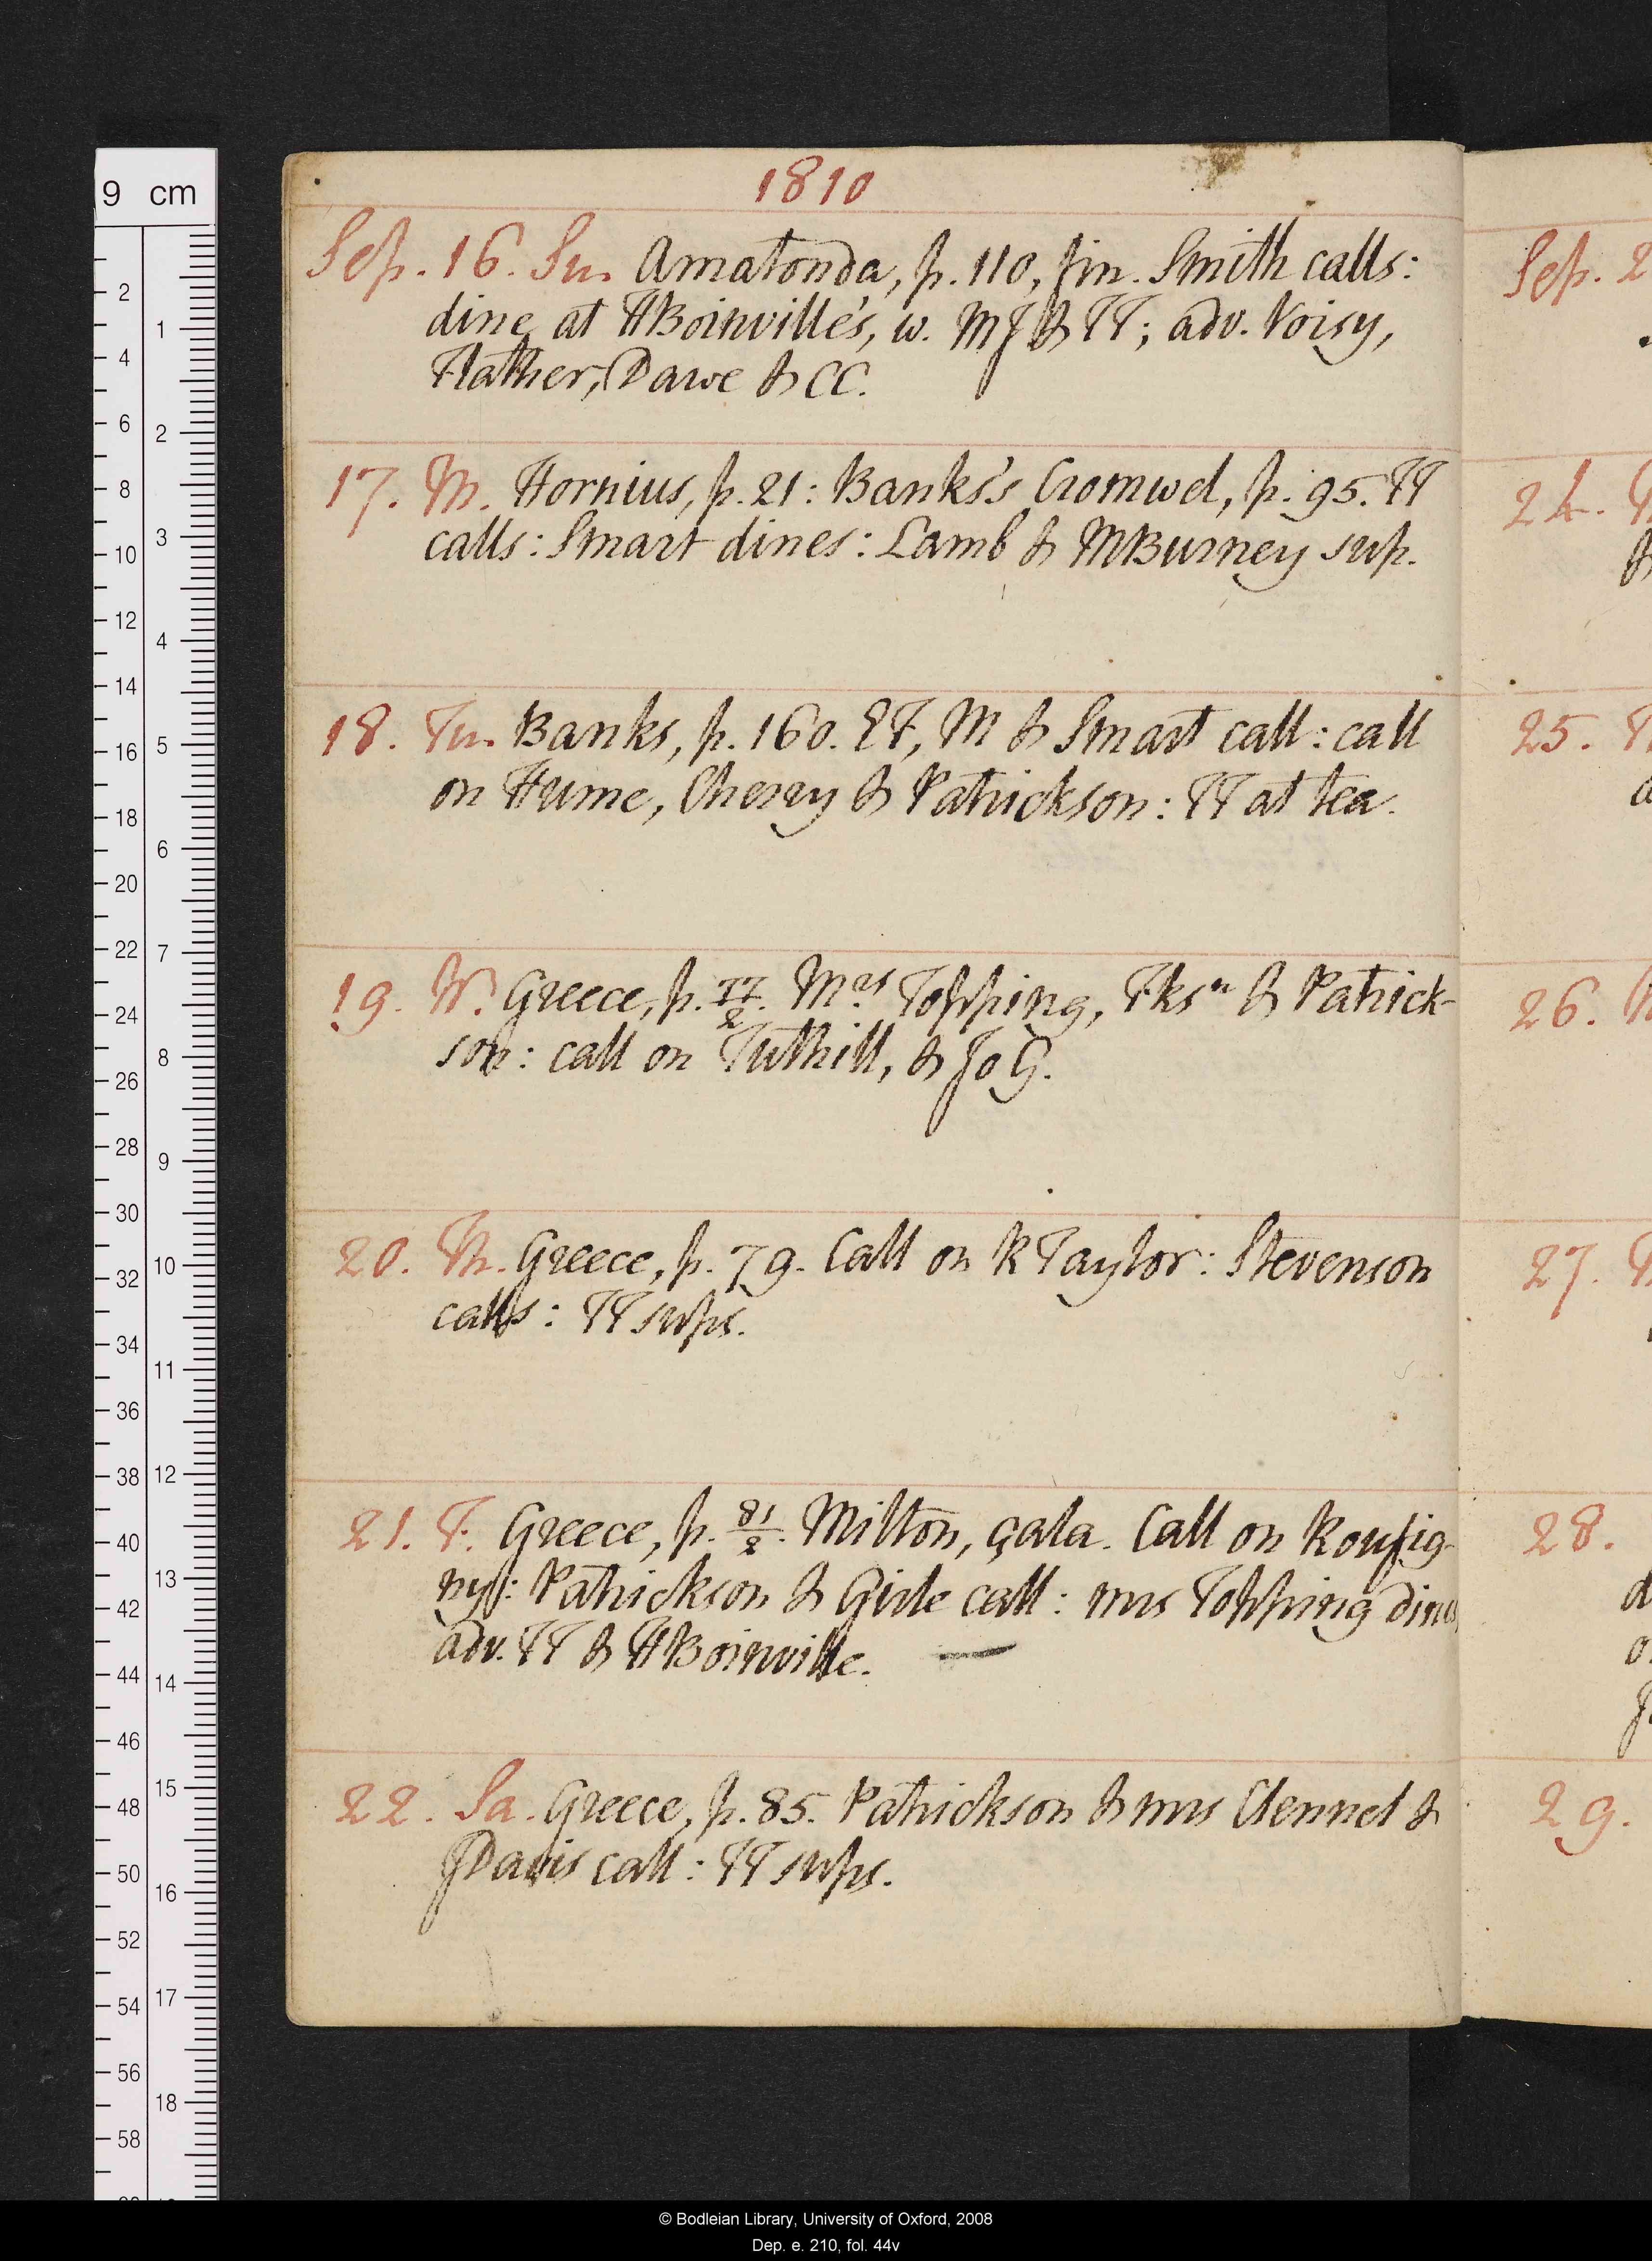 1810
Sep. 16. Su. Amatonda, p. 110, fin. Smith calls:
dine at HBoinville's, w. MJ & TT; adv. Voisy,
Flather, Dawe & CC.
17. M. Hornius, p. 21: Banks's Cromwel, p. 95. TT
calls: Smart dines: Lamb & MBurney sup.
18. Tu. Banks, p. 160. EF, M & Smart call: call
on Hume, Cherry & Patrickson: TT at tea.
19. W. Greece, p. 77/2. Mrs Topping, Fksn & Patrick-
son: call on Tuthill, & JoG.
20. Th. Greece, p. 79. Call on RTaylor: Stevenson
calls: TT sups.
21. F. Greece, p. 81/2. Milton, çala. Call on Roufig-
ny: Patrickson & Girle call: mrs Topping dines
adv. TT & HBoinville.
22. Sa. Greece, p. 85. Patrickson & mrs Clennel &
JDavis call: TT sups.
Sep. 2
24.
25.
26.
27.
28.
29.
9 cm
2
4
6
8
10
12
14
16
18
20
22
24
26
28
30
32
34
36
38
40
42
44
46
48
50
52
54
56
58
1
2
3
4
5
6
7
8
9
10
11
12
13
14
15
16
17
18
© Bodleian Library, University of Oxford, 2008
Dep. e. 210, fol. 44v